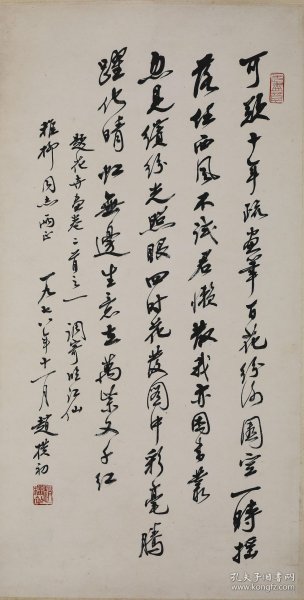 可歎十年疏畫筆百花紛謝園空一時搖
落任西風不君懶散我亦困書叢
忽見繽紛光照眼四時花發圖中彩毫騰
躍化晴虹無邊生意在萬紫又千紅
題花卉畫卷二首之一 調寄臨江仙
稚柳同志兩正 一九七八年十一月 趙樸初
孔夫子旧书网